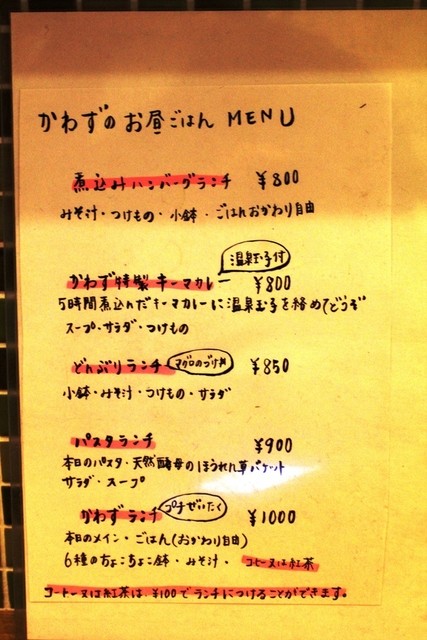 かわずのお昼ごはん MENU
煮込みハンバーグランチ ¥800
みそ汁・つけもの・小鉢・ごはんおかわり自由
温泉玉子付
かわず特製キーマカレー ¥800
5時間煮込んだキーマカレーに温泉玉子を絡めてどうぞ
スープ・サラダ・つけもの
どんぶりランチ マグロのづけ丼 ¥850
小鉢・みそ汁・つけもの・サラダ
パスタランチ ¥900
本日のパスタ・天然酵母のほうれん草バケット
サラダ・スープ
かわずランチ プチぜいたく ¥1000
本日のメイン・ごはん(おかわり自由)
6種のちょこちょこ鉢・みそ汁・コーヒー又は紅茶
コーヒー又は紅茶は、¥100でランチにつけることができます。